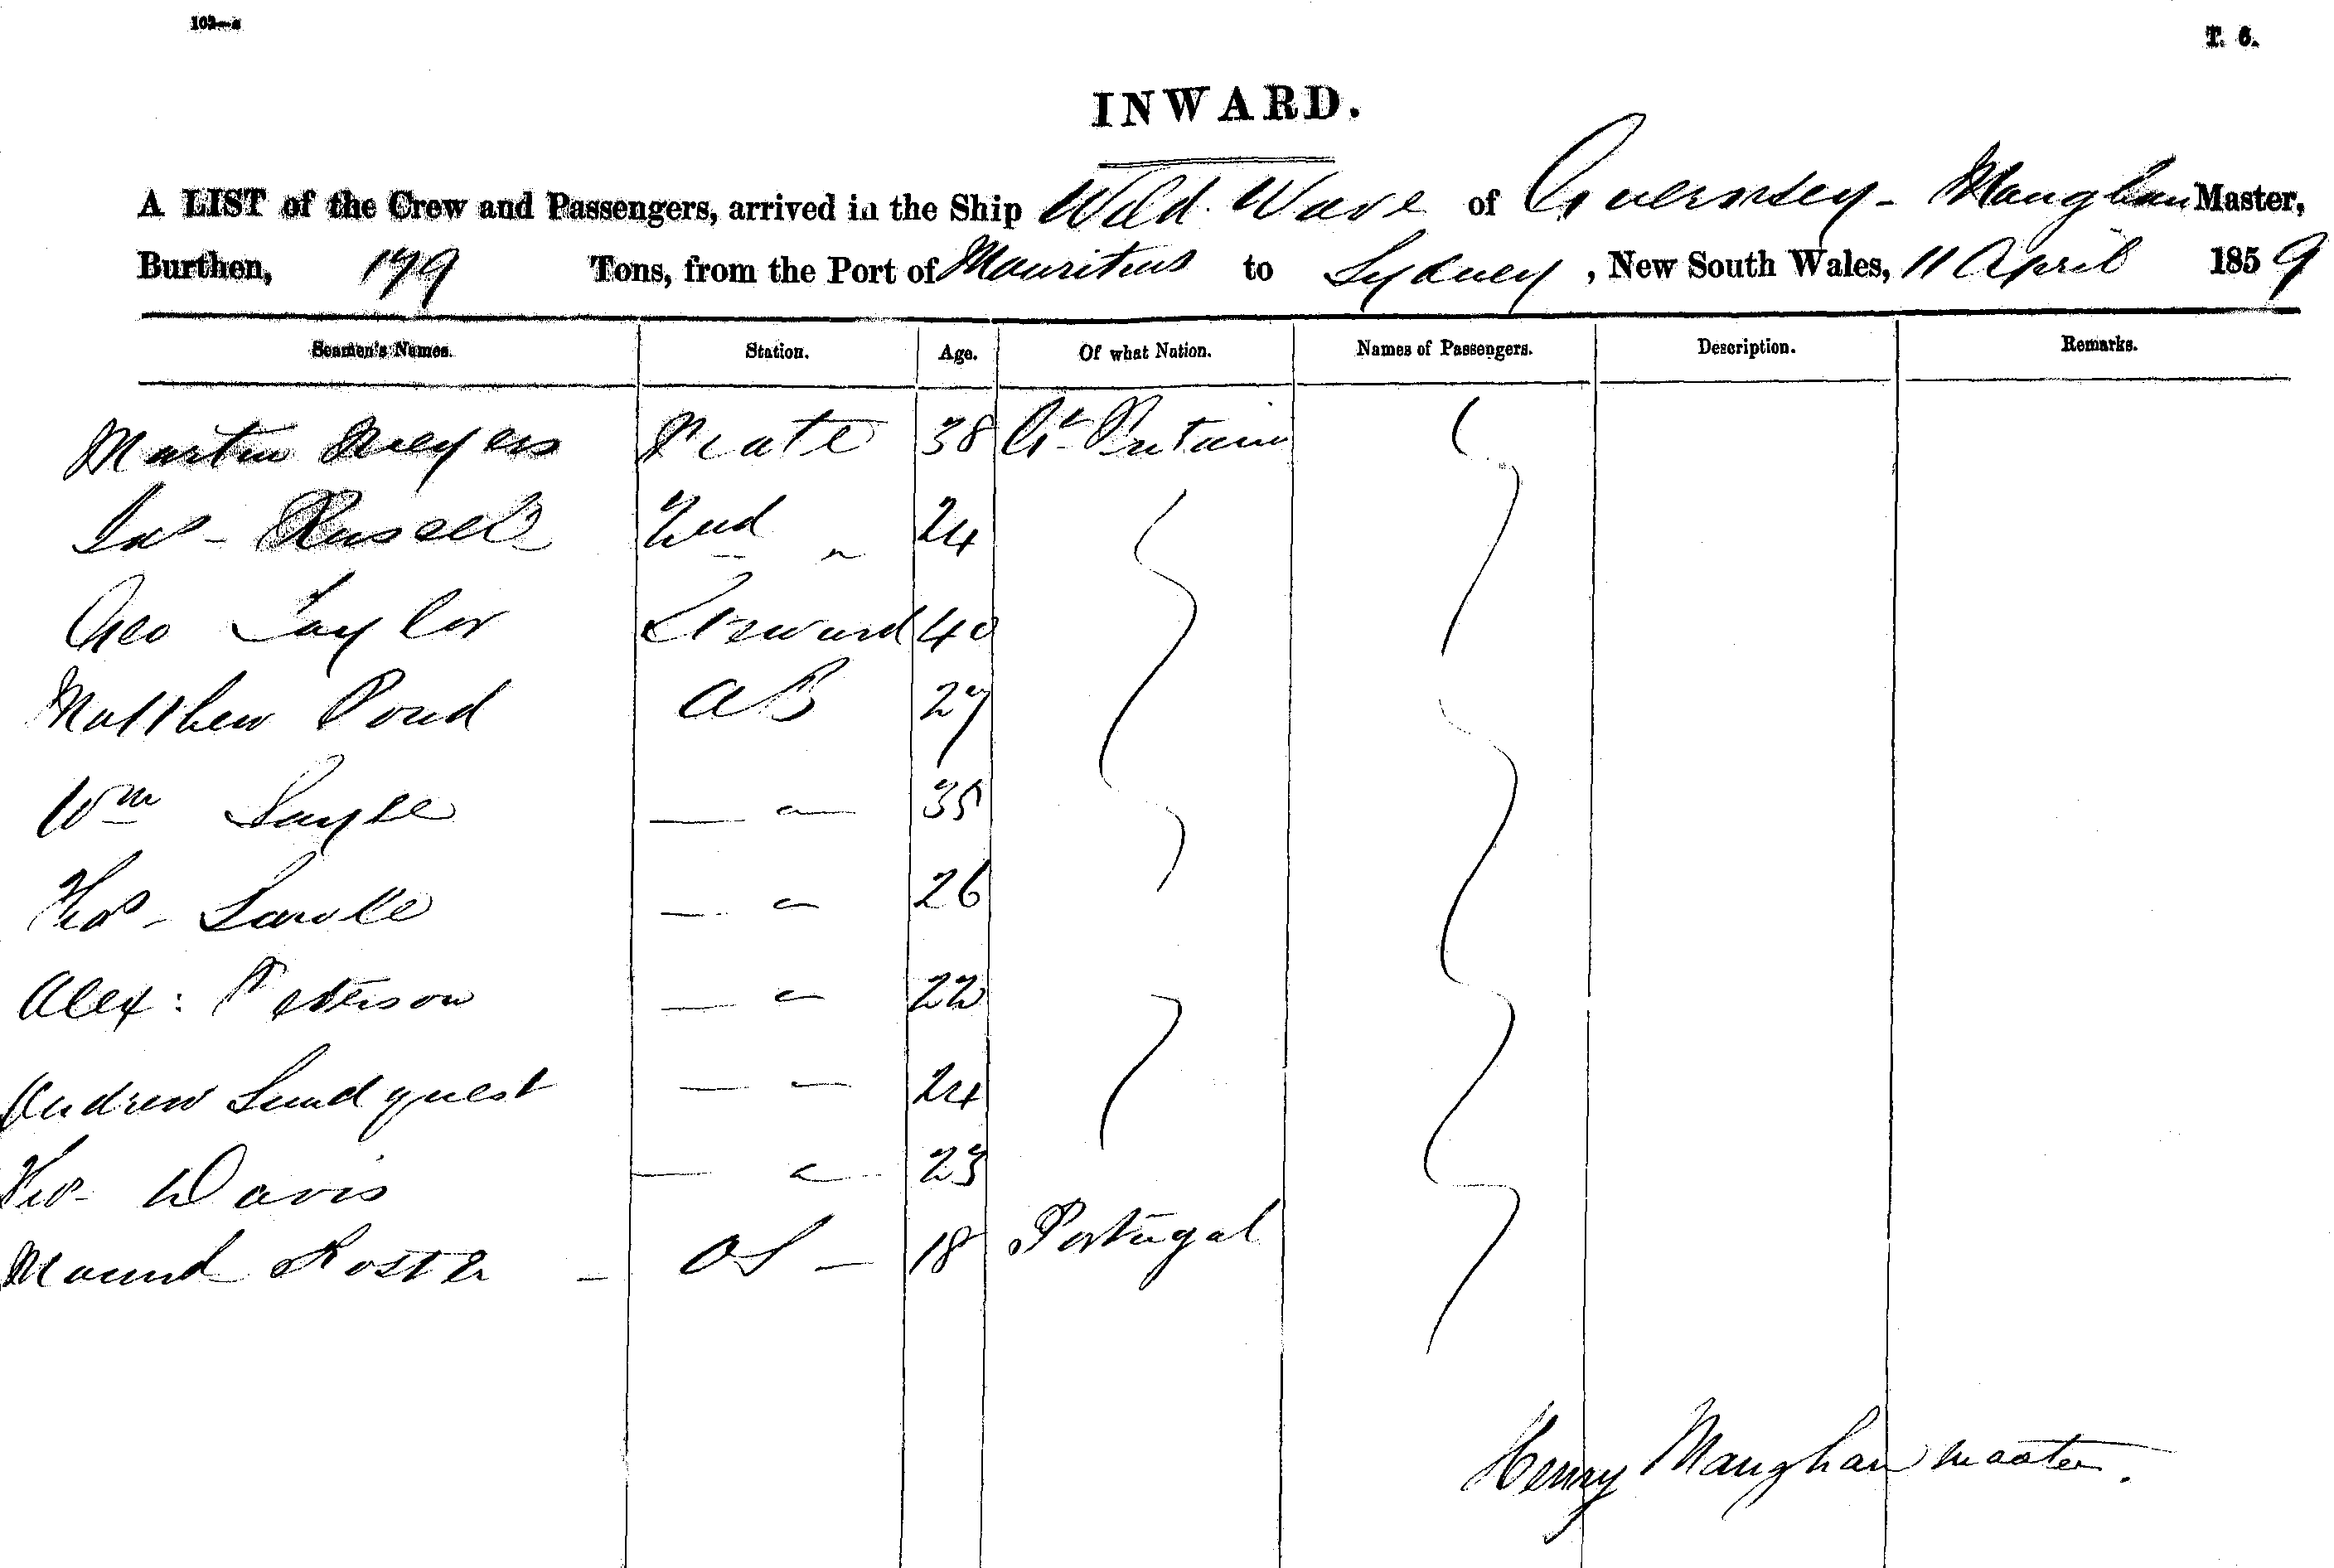 T. 6.
INWARD.
A LIST of the Crew and Passengers, arrived in the Ship Wild Wave of Guernsey - Maughan Master,
Burthen, 179 Tons, from the Port of Mauritius to Sydney, New South Wales, 11 April 1859
Seamen's Names. Station. Age. Of what Nation. Names of Passengers. Description. Remarks.
Martin Meyers Mate 38 Gt Britain
Jas - Russell 2nd " 24
Geo Taylor Steward 40
Matthew Pond AB 27
Wm 35
Thos - 26
Alex : Peterson 22
Andrew Lundquest 24
Thos - Davis 23
OS - 18 Portugal
Henry Maughan master.